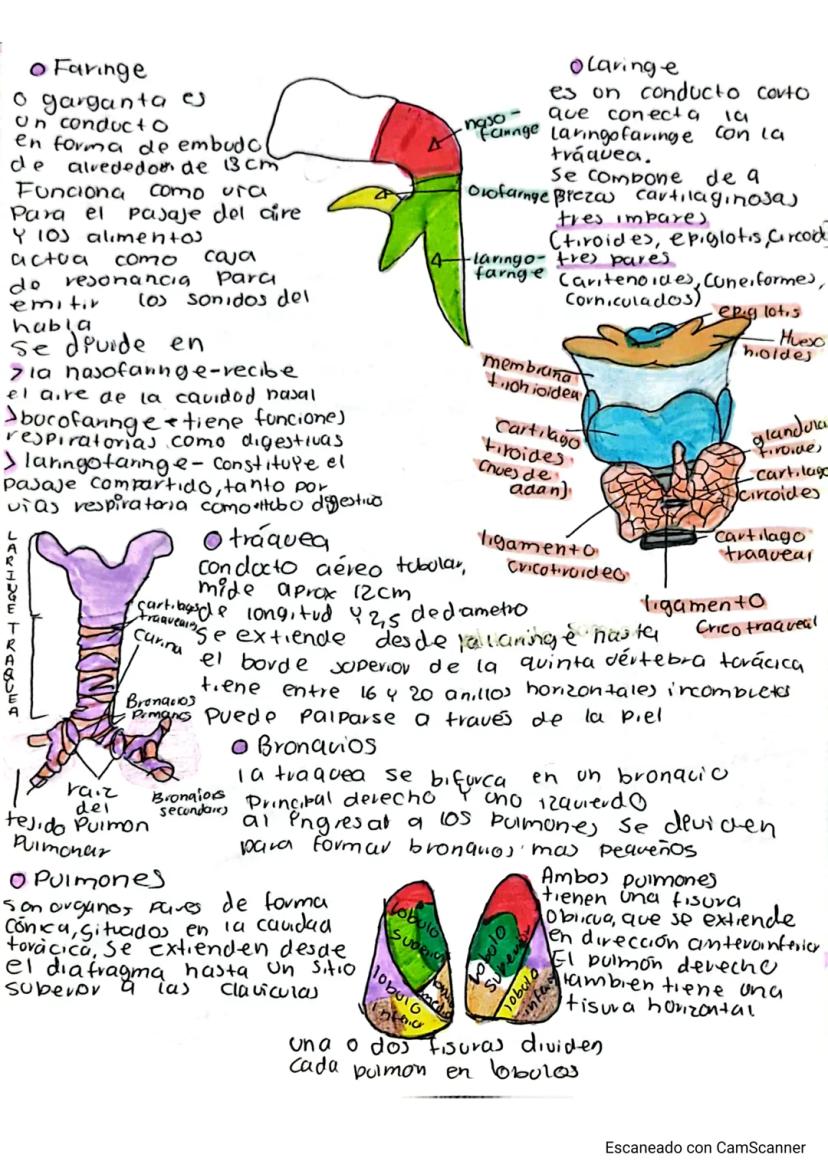 Faringe
o garganta es
un conducto
en forma de embudo
de alrededor de 13 cm
Funciona como via
Para el pasaje del aire
Y los alimentos
actua como caja
de resonancia para
emitir los sonidos del
habla
se divide en
>la nasofaringe-recibe
el aire de la cavidad nasal
>bucofaringe - tiene funciones
respiratorias como digestivas
> laringofaringe - constituye el
pasaje compartido, tanto por
vias respiratoria como tubo digestivo
naso-
faringe
orofaringe
laringo-
faringe
Laringe
es un conducto corto
que conecta la
laringofaringe con la
tráquea.
se compone de 9
Piezas cartilaginosas
tres impares
(tiroides, epiglotis, circoid
tres pares
(aritenoides, cuneiformes,
corniculados)
epiglotis
Hueso
hioides
membrana
tirohioidea
cartilago
tiroides
(nues de
adan)
glandula
tiroides
cartilago
circoides
ligamento
cricotiroideo
cartilago
traqueal
ligamento
cricotraqueal
LARINGE TRAQUEA
cartilago
traqueales
carina
Bronquios
Primarios
Bronquiors
secundarios
raiz
del
Pulmon
tejido
Pulmonar
tráquea
conducto aéreo tubular,
mide aprox 12cm
de longitud Y 2,5 de diametro
se extiende desde la laringe hasta
el borde superior de la quinta vértebra torácica
tiene entre 16 y 20 anillos horizontales incompletos
Puede palparse a través de la piel
Bronquios
la traquea se bifurca en un bronquio
Principal derecho Y uno izquierdo
al ingresar a los pulmones se deviden
para formar bronquios mas pequeños
Pulmones
son organos pares de forma
cónica, situados en la cavidad
torácica, Se extienden desde
el diafragma hasta un sitio
superor a las claviculas
lobulo
superior
lobulo
medio
lobulo
inferior
lobulo
superior
lobulo
inferior
Ambos pulmones
tienen una fisura
oblicua, que se extiende
en dirección anteroinferior
El pulmón derecho
tambien tiene una
fisura horizontal
una o dos fisuras dividen
cada pulmon en lobulos
Escaneado con CamScanner